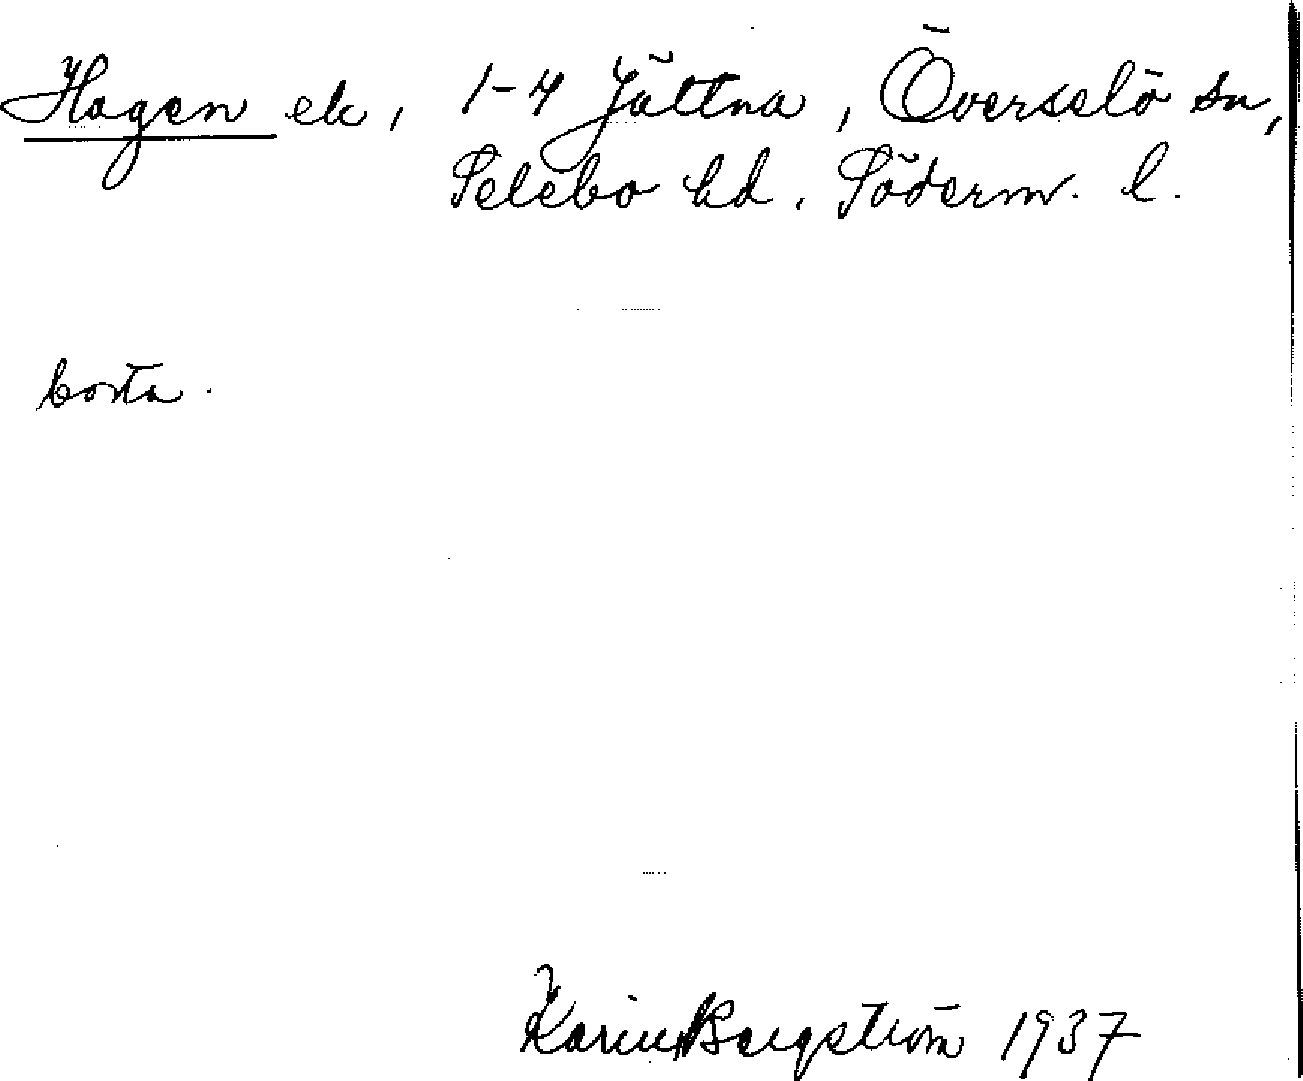 Hagen ek, 1-4 Jättna, Överselö sn,
Selebo hd, Söderm. l.
borta.
Karin Bergström 1937